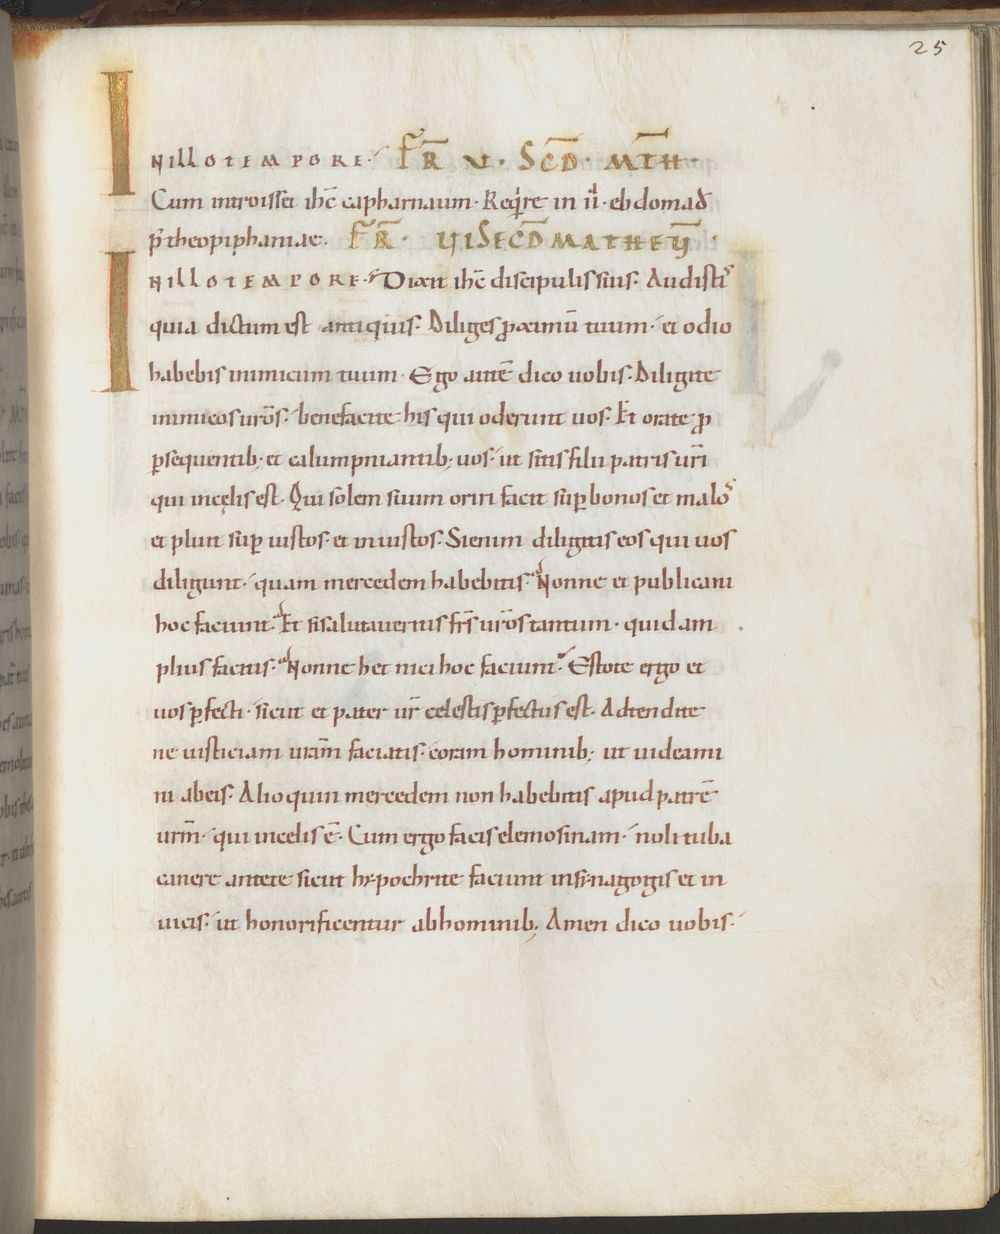 25
IN ILLO TEMPORE. FR̄ V. SCD̄. MT̄H.
Cum introisset ihc̄ capharnaum. Reqͥre in ii. ebdomad̄
p̄ theopiphaniae. FR̄. VI SECD̄ MATHEV̄.
IN ILLO TEMPORE. Dixit ihc̄ discipulis suis. Audistis
quia dictum est antiquis. Diliges proximū tuum. et odio
habebis inimicum tuum. Ego autē dico uobis. Diligite
inimicos urōs. benefacite his qui oderunt uos. Et orate ꝓ
ꝑsequentib; et calumpniantib; uos. ut sitis filii patris urī
qui in cęlis est. Qui solem suum oriri facit suꝑ bonos et malos
et pluit suꝑ iustos. et iniustos. Si enim diligitis eos qui uos
diligunt. quam mercedem habebitis. Nonne et publicani
hoc faciunt. Et si salutaueritis frs̄ urōs tantum. quid am
plius facitis. Nonne het nici hoc faciunt. Estote ergo et
uos ꝑfecti. sicut et pater ur̄ celestis ꝑfectus est. Adtendite
ne iusticiam uram̄ faciatis. coram hominib; ut uideami
ni ab eis. Alioquin mercedem non habebitis apud patrē
urm̄. qui in celis ē. Cum ergo facis elemosinam. noli tuba
canere ante te sicut hypochrite faciunt in synagogis et in
uicis. ut honorificentur ab hominib; Amen dico uobis.